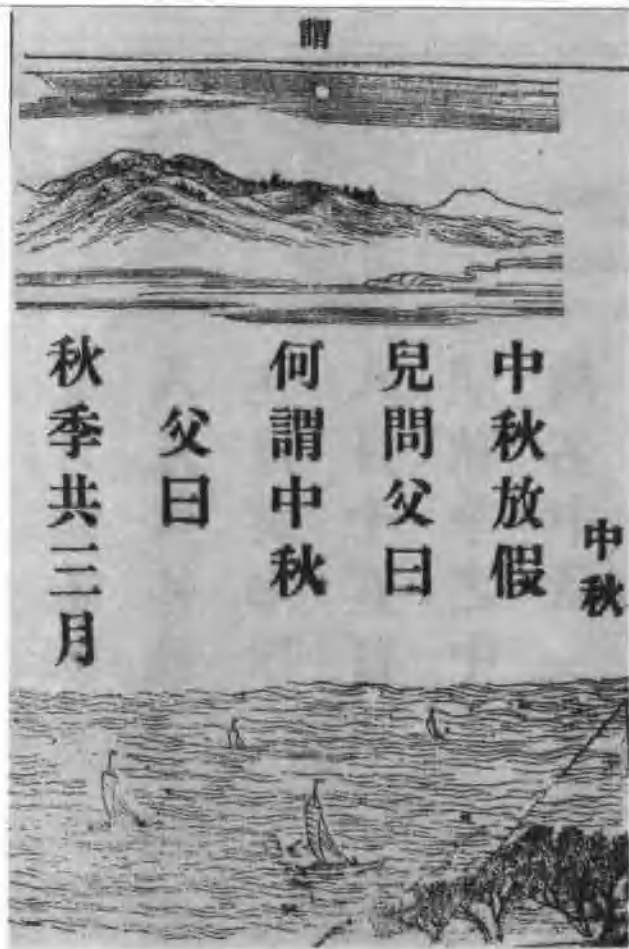 謂
中秋
中秋放假
兒問父曰
何謂中秋
父曰
秋季共三月